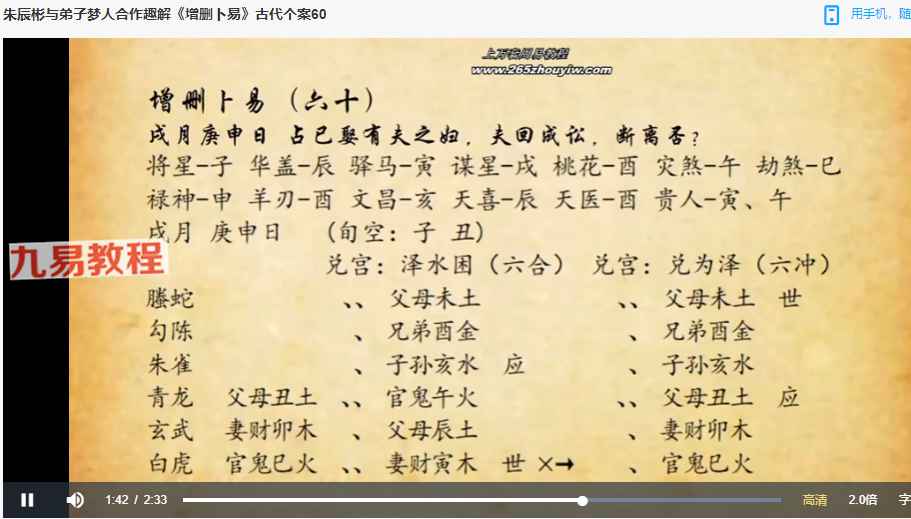 朱辰彬与弟子梦人合作趣解《增删卜易》古代个案60
用手机，随
www.265zhouyiw.com
增删卜易（六十）
戌月庚申日 占已娶有夫之妇，夫回成讼，断离否？
将星-子 华盖-辰 驿马-寅 谋星-戌 桃花-酉 灾煞-午 劫煞-巳
禄神-申 羊刃-酉 文昌-亥 天喜-辰 天医-酉 贵人-寅、午
戌月 庚申日 （旬空：子 丑）
九易教程
兑宫：泽水困（六合） 兑宫：兑为泽（六冲）
螣蛇 、、 父母未土 、、 父母未土 世
勾陈 、 兄弟酉金 、 兄弟酉金
朱雀 、 子孙亥水 应 、 子孙亥水
青龙 父母丑土 、、 官鬼午火 、、 父母丑土 应
玄武 妻财卯木 、 父母辰土 、 妻财卯木
白虎 官鬼巳火 、、 妻财寅木 世 ×→ 、 官鬼巳火
1:42 / 2:33 高清 2.0倍 字